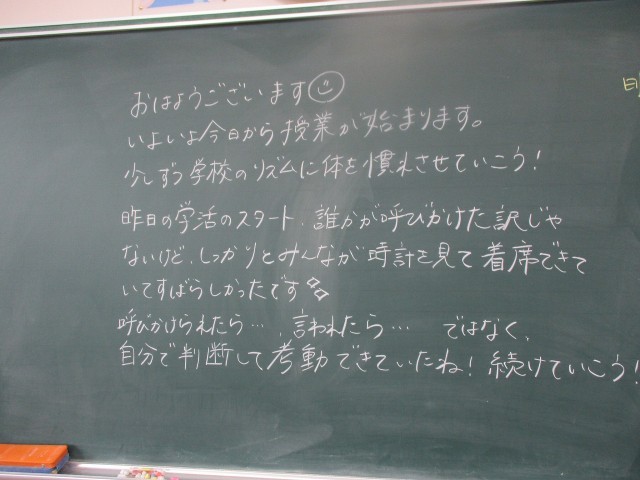 おはようございます
いよいよ今日から授業が始まります。
少しずつ学校のリズムに体を慣れさせていこう！
昨日の学活のスタート、誰かが呼びかけた訳じゃ
ないけど、しっかりとみんなが時計を見て着席できて
いてすばらしかったです
呼びかけられたら…、言われたら… ではなく、
自分で判断して考動できていたね！続けていこう！